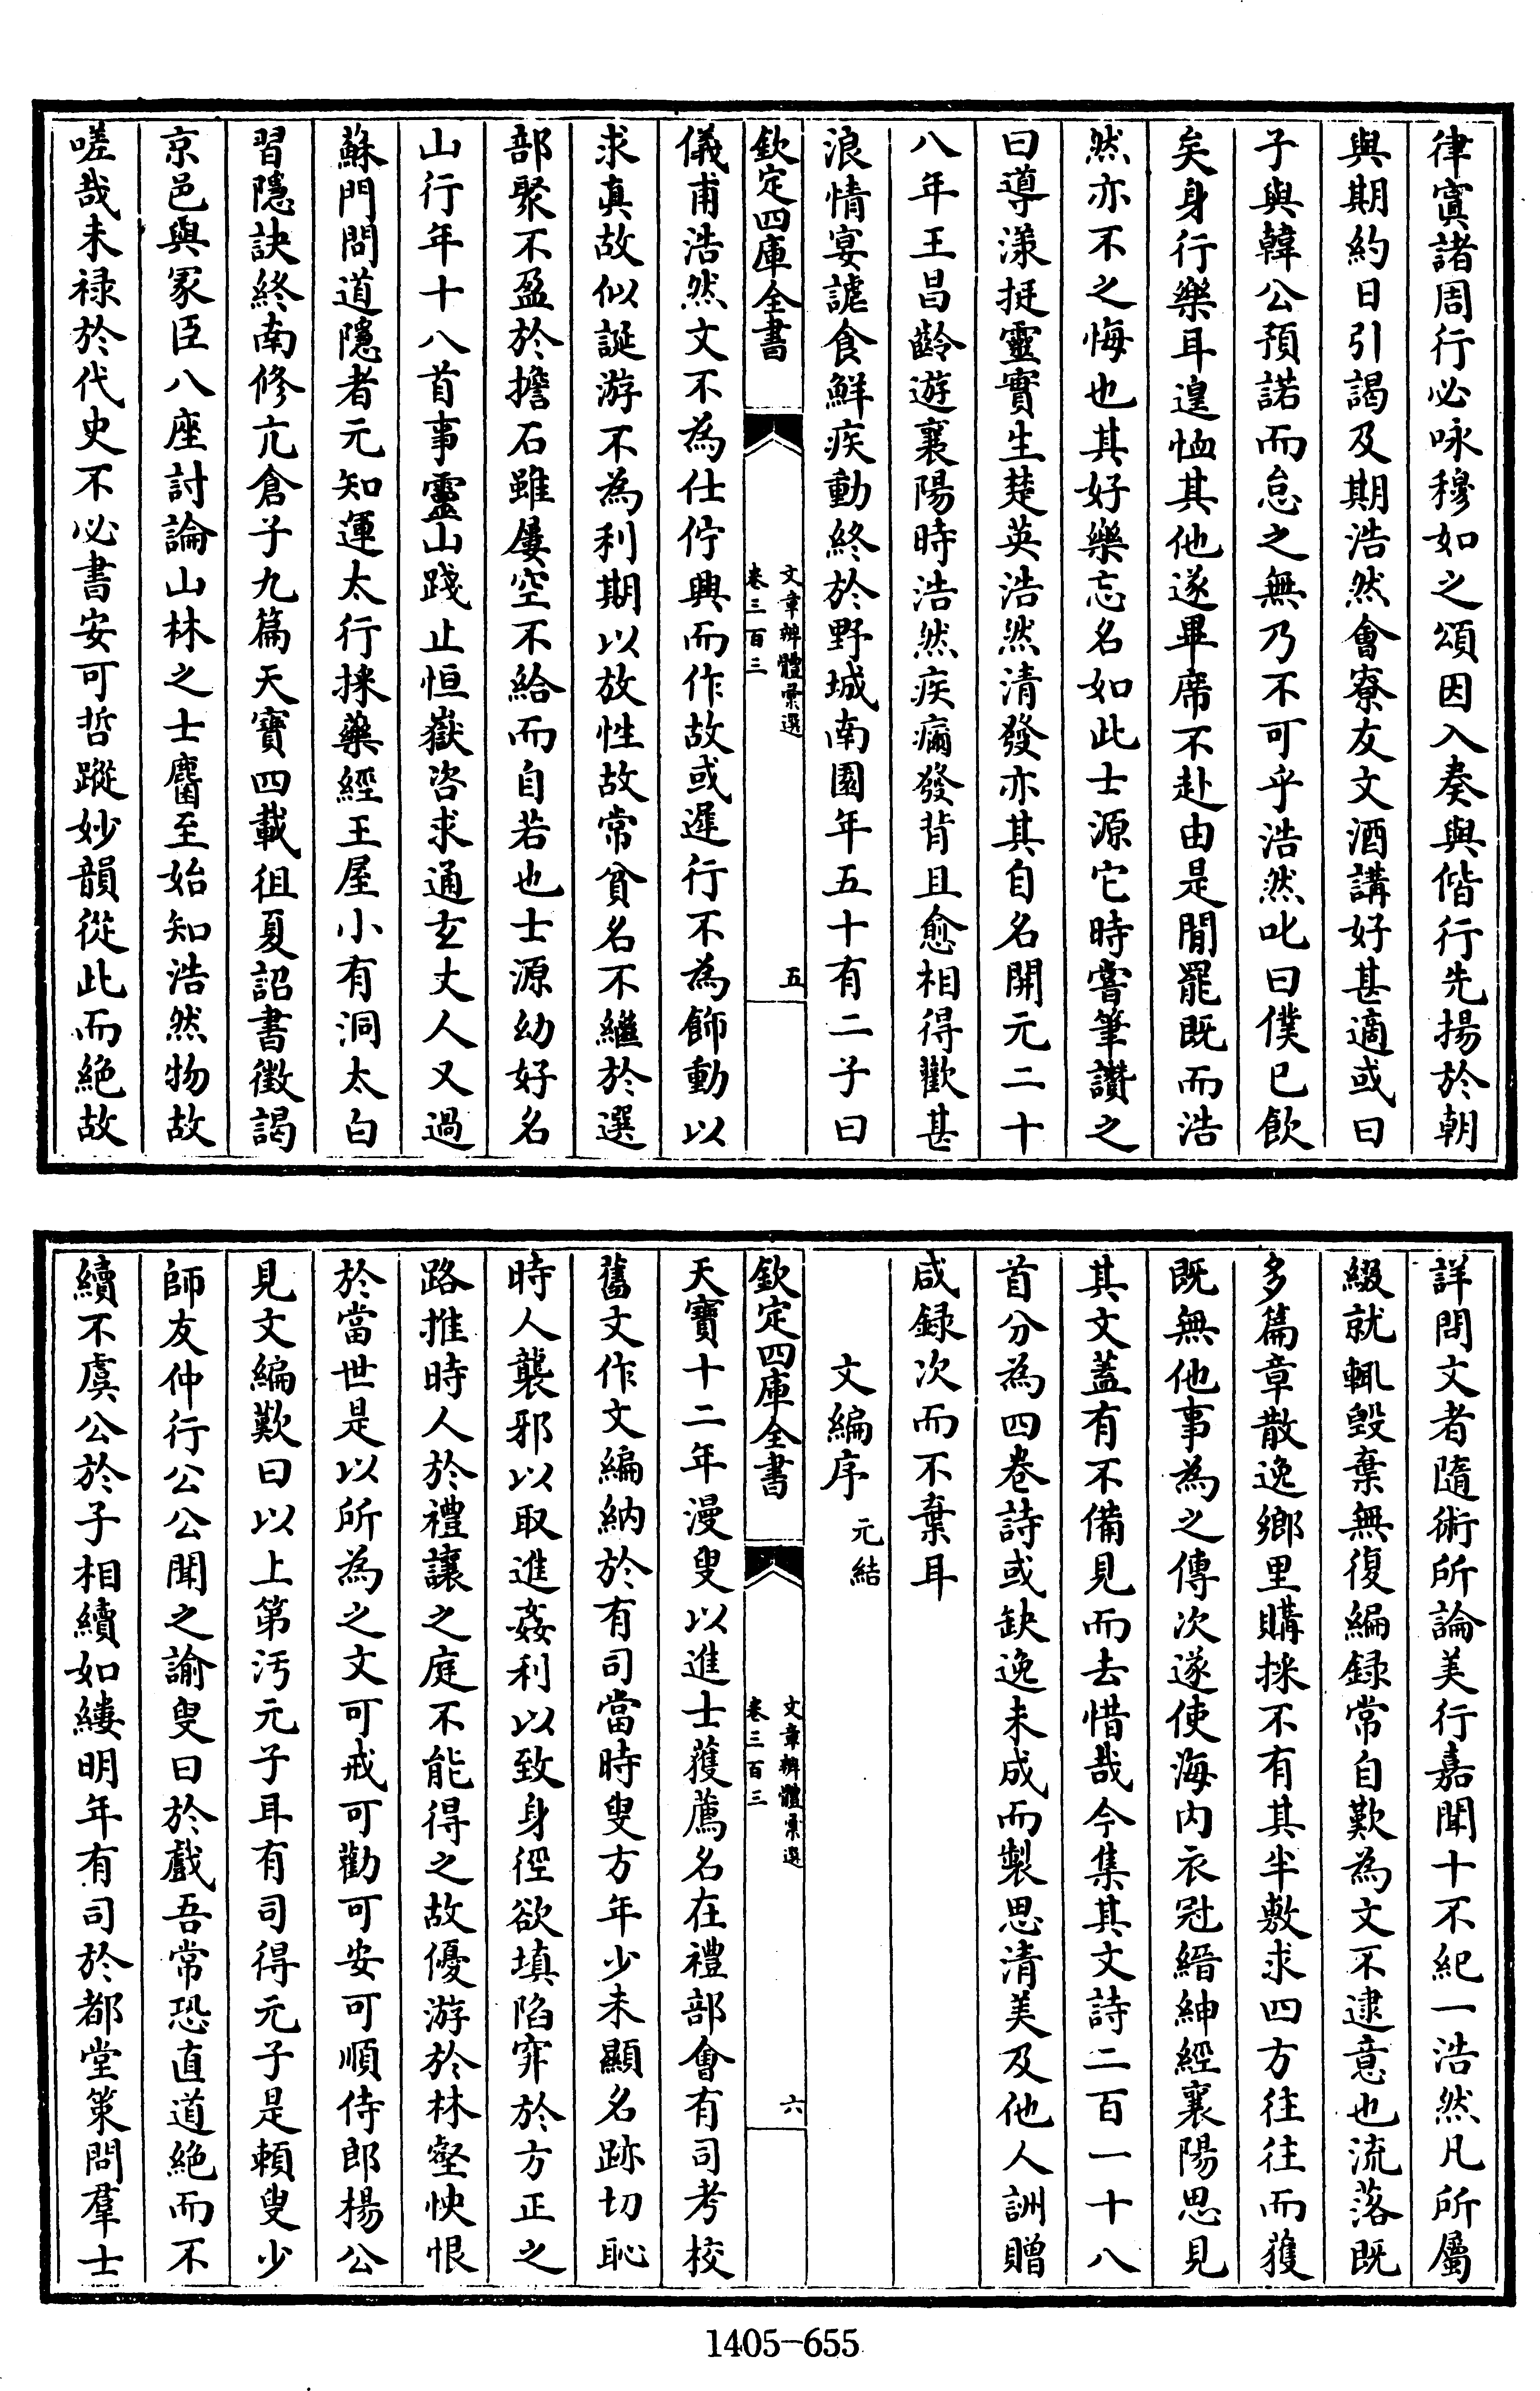 律寘諸周行必咏穆如之頌因入奏與偕行先揚於朝
與期約日引謁及期浩然會寮友文酒講好甚適或曰
子與韓公預諾而怠之無乃不可乎浩然叱曰僕已飲
矣身行樂耳遑恤其他遂畢席不赴由是閒罷既而浩
然亦不之悔也其好樂忘名如此士源它時嘗筆讚之
曰導漾挺靈實生楚英浩然清發亦其自名開元二十
八年王昌齡遊襄陽時浩然疾瘺發背且愈相得歡甚
浪情宴謔食鮮疾動終於野城南園年五十有二子曰
欽定四庫全書
文章辨體彙選
卷三百三
五
儀甫浩然文不為仕佇興而作故或遲行不為飾動以
求真故似誕游不為利期以放性故常貧名不繼於選
部聚不盈於擔石雖屢空不給而自若也士源幼好名
山行年十八首事靈山踐止恒嶽咨求通玄丈人又過
蘇門問道隱者元知運太行採藥經王屋小有洞太白
習隱訣終南修亢倉子九篇天寶四載徂夏詔書徵謁
京邑與冢臣八座討論山林之士麏至始知浩然物故
嗟哉未禄於代史不必書安可哲蹤妙韻從此而絶故
詳問文者隨術所論美行嘉聞十不紀一浩然凡所屬
綴就輒毀棄無復編録常自歎為文不逮意也流落既
多篇章散逸鄉里購採不有其半敷求四方往往而獲
既無他事為之傳次遂使海内衣冠縉紳經襄陽思見
其文蓋有不備見而去惜哉今集其文詩二百一十八
首分為四卷詩或缺逸未成而製思清美及他人詶贈
咸録次而不棄耳
文編序 元結
欽定四庫全書
文章辨體彙選
卷三百三
六
天寶十二年漫叟以進士獲薦名在禮部會有司考校
舊文作文編納於有司當時叟方年少未顯名跡切恥
時人襲邪以取進姦利以致身徑欲填陷穽於方正之
路推時人於禮讓之庭不能得之故優游於林壑怏恨
於當世是以所為之文可戒可勸可安可順侍郎楊公
見文編歎曰以上第汚元子耳有司得元子是頼叟少
師友仲行公公聞之諭叟曰於戲吾常恐直道絶而不
續不虞公於子相續如縷明年有司於都堂策問羣士
1405-655